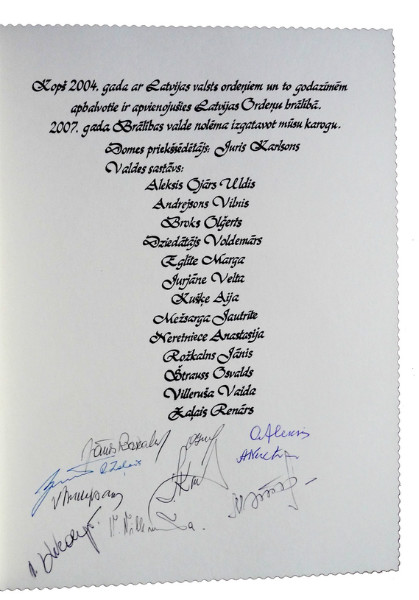 Kopš 2004. gada ar Latvijas valsts ordeņiem un to godazīmēm
apbalvotie ir apvienojušies Latvijas Ordeņu brālībā.
2007. gada Brālības valde nolēma izgatavot mūsu karogu.
Domes priekšsēdētājs: Juris Karlsons
Valdes sastāvs:
Aleksis Ojārs Uldis
Andrejsons Vilnis
Broks Oļģerts
Dziedātājs Voldemārs
Eglīte Marga
Jurjāne Velta
Kušķe Aija
Mežsarga Jautrīte
Neretniece Anastasija
Rožkalns Jānis
Štrauss Osvalds
Villeruša Vaida
Zaļais Renārs